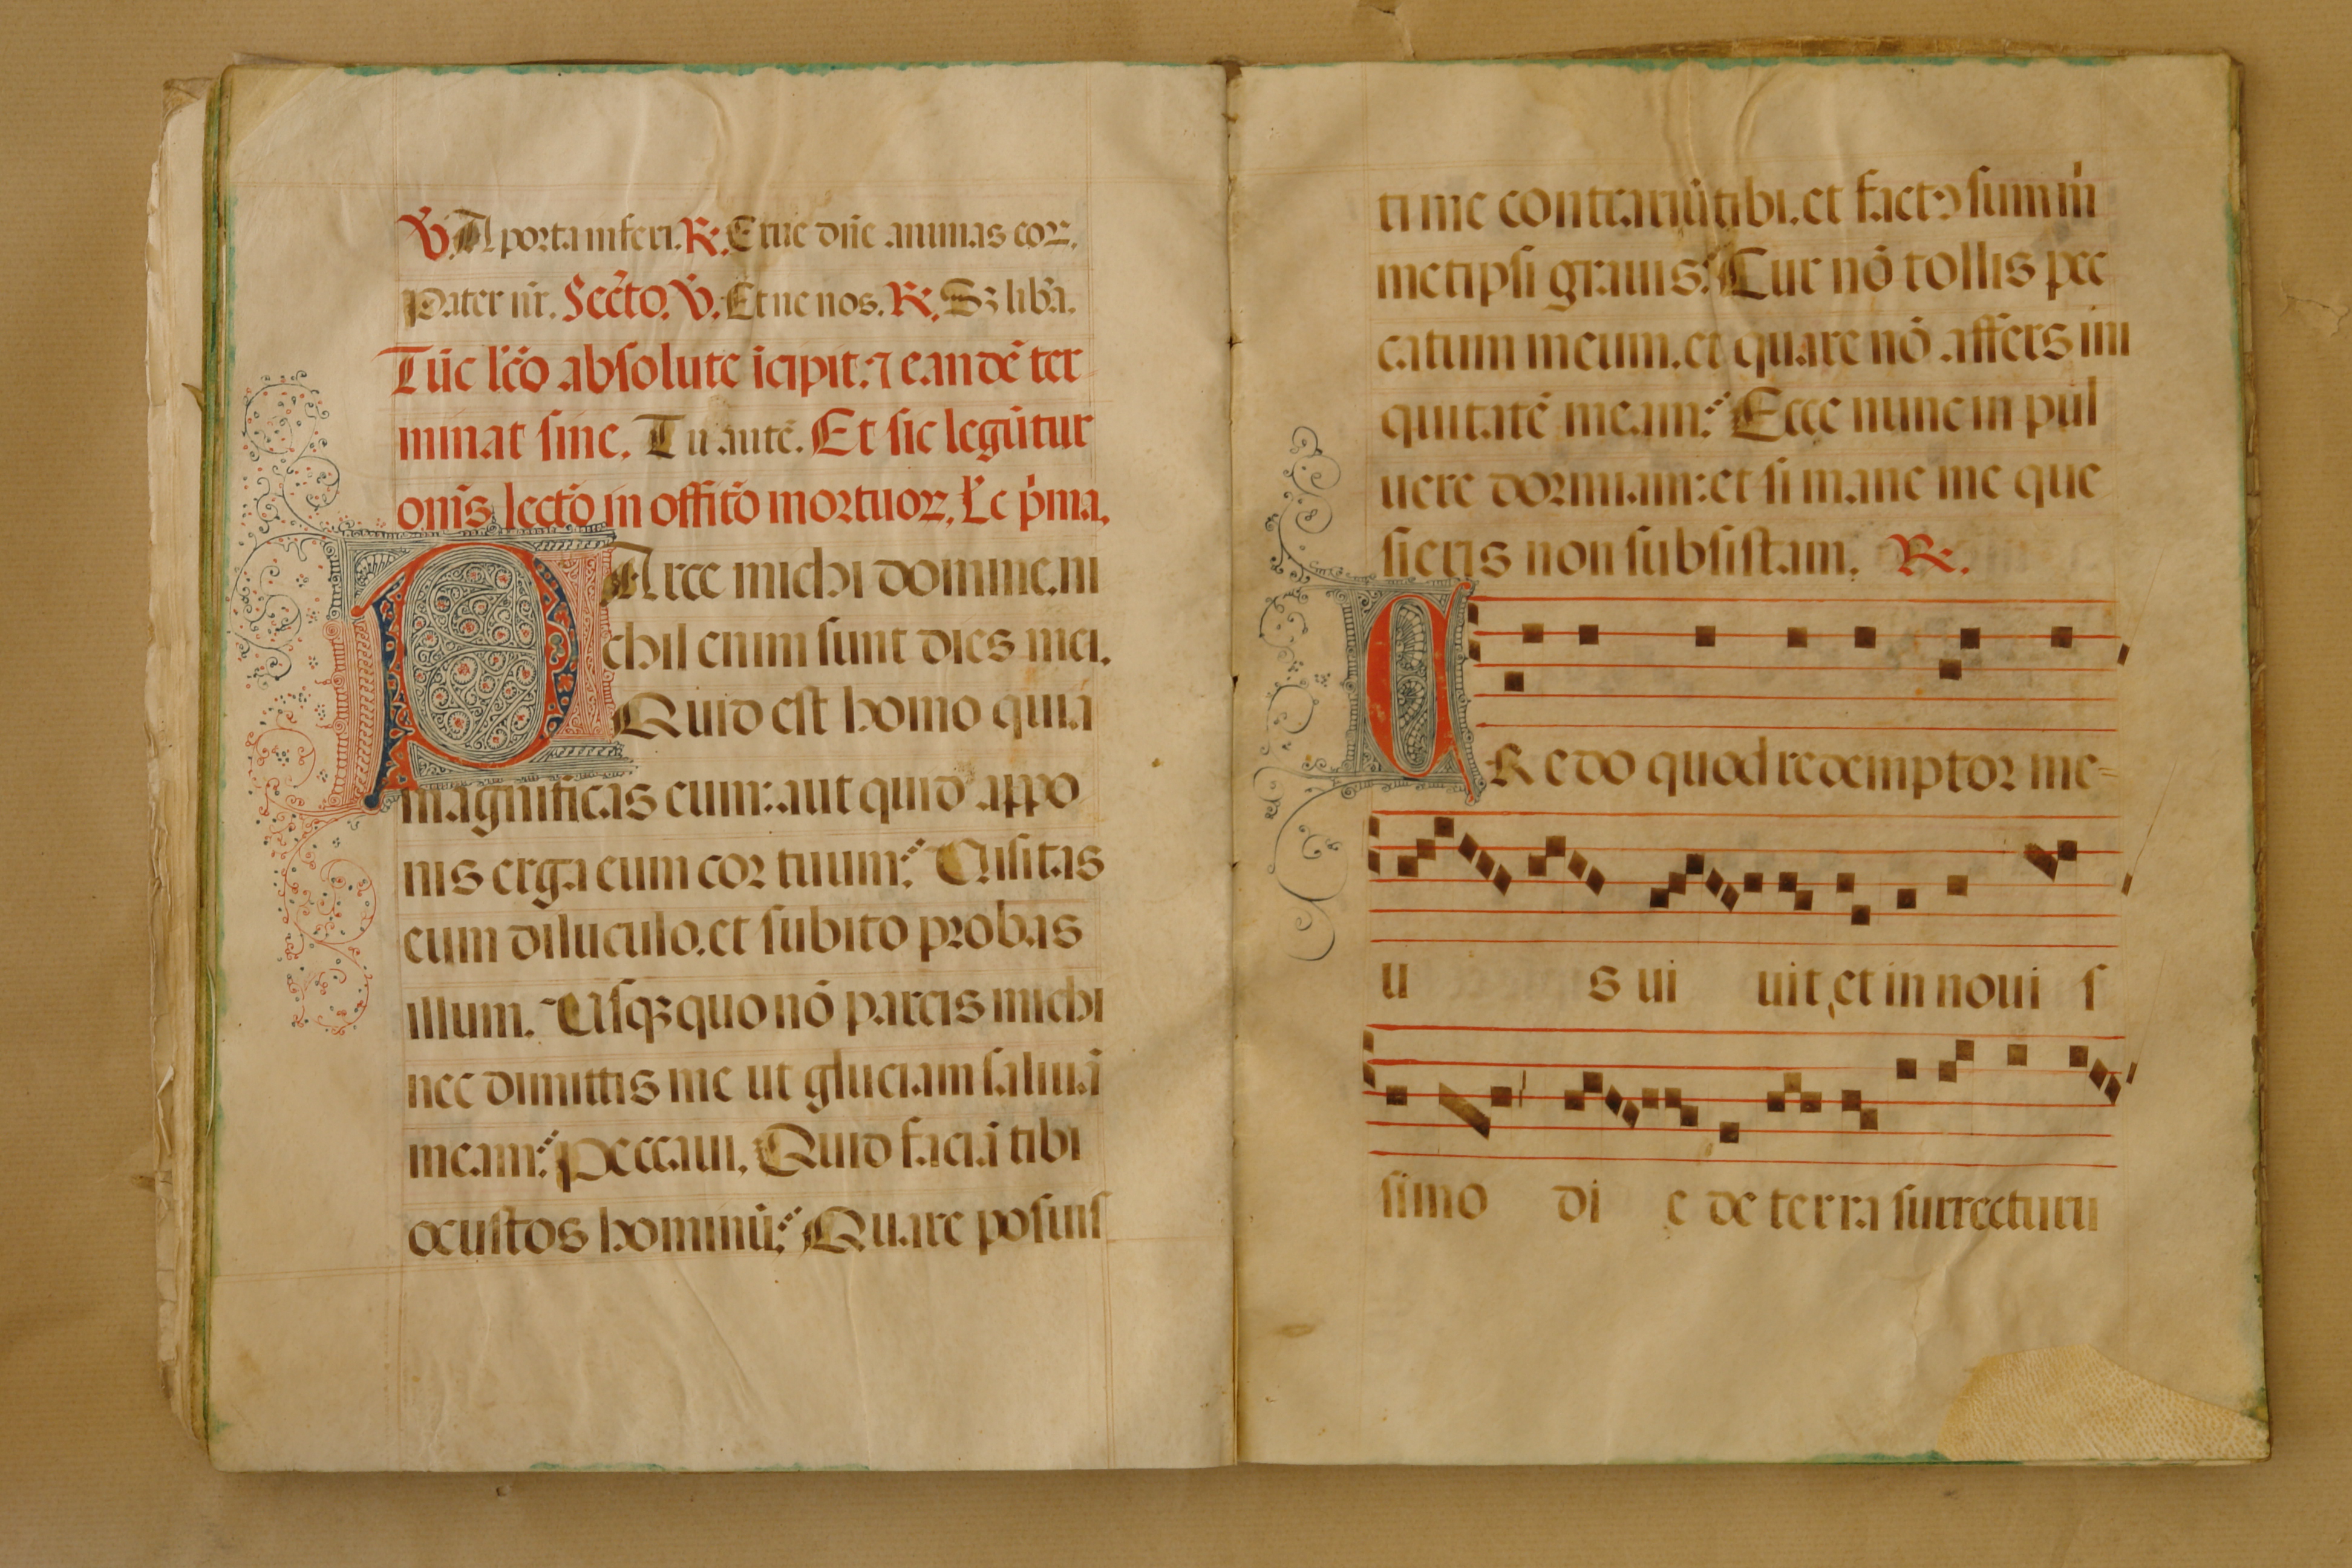 V̄. A porta inferi. R̄. Erue dn̄e animas eoꝝ.
Pater nr̄. Secr̄to. V̄. Et ne nos. R̄. Sꝫ lib̄a.
Tūc lc̄o absolute īcipit: ⁊ eandē ter
minat sine. Tu autē. Et sic legūtur
om̄s lecto᷑ in offito᷑ mortuoꝝ. Lc̄ p̄ma.
PArce michi domine. ni
chil enim sunt dies mei.
Quid est homo quia
magnificas eum: aut quid appo
nis erga eum cor tuum? Uisitas
eum diluculo. et subito probas
illum. Usqꝫ quo nō parcis michi
nec dimittis me ut gluciam saliuā
meam? Peccaui. Quid faciā tibi
o custos hominū? Quare posuis
ti me contrariū tibi. et factꝰ sum m̄
metipsi grauis? Cur nō tollis pec
catum meum. et quare nō affers ini
quitatē meam? Ecce nunc in pul
uere dormiam: et si mane me que
sieris non subsistam. R̄.
CRedo quod redemptor me-
u s ui uit, et in noui s
simo di e de terra surrecturu